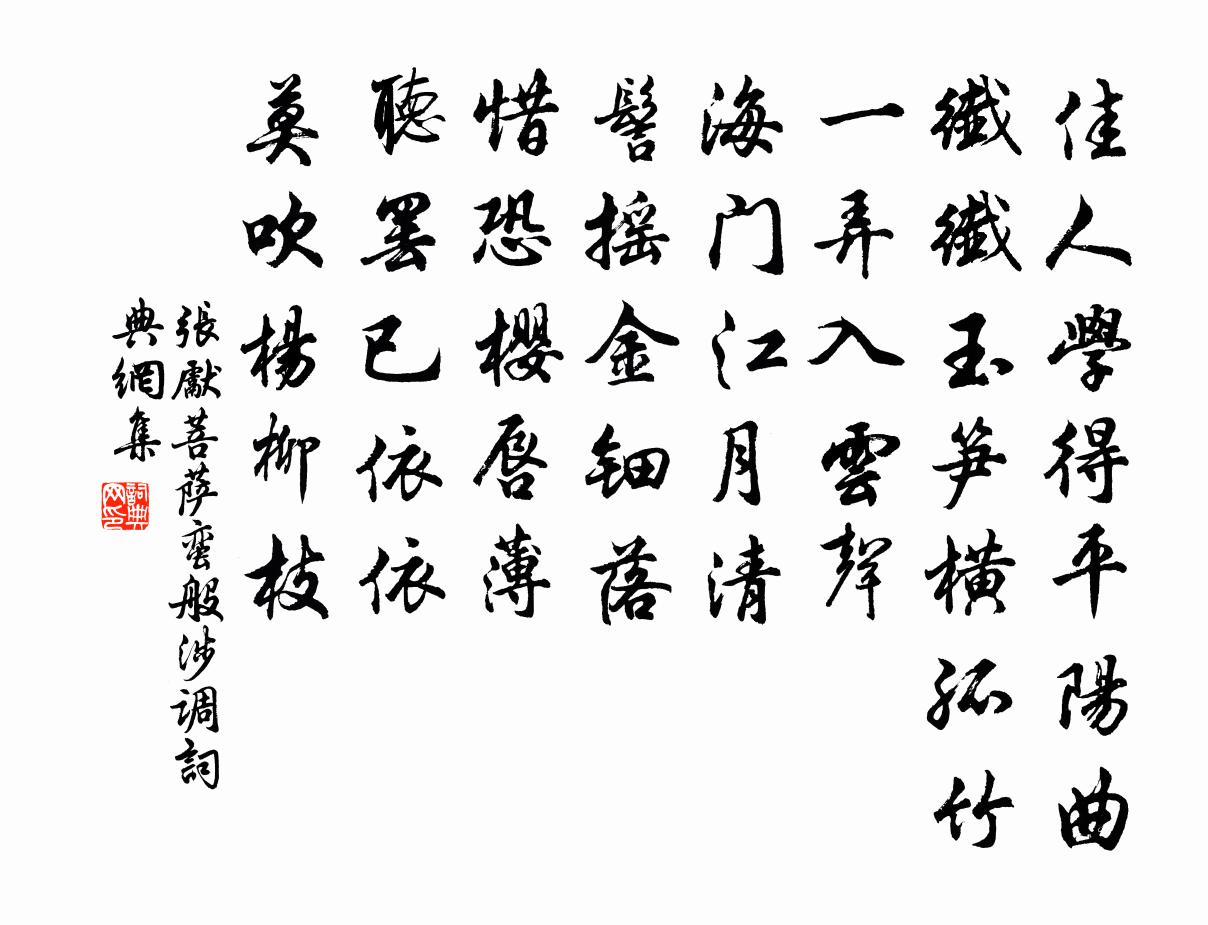 佳人學得平陽曲
纖纖玉笋橫孤竹
一弄入雲聲
海門江月清
髻摇金鈿落
惜恐櫻唇薄
聽罷已依依
莫吹楊柳枝
張獻菩萨蛮般涉调詞
典網集
詞典
网印